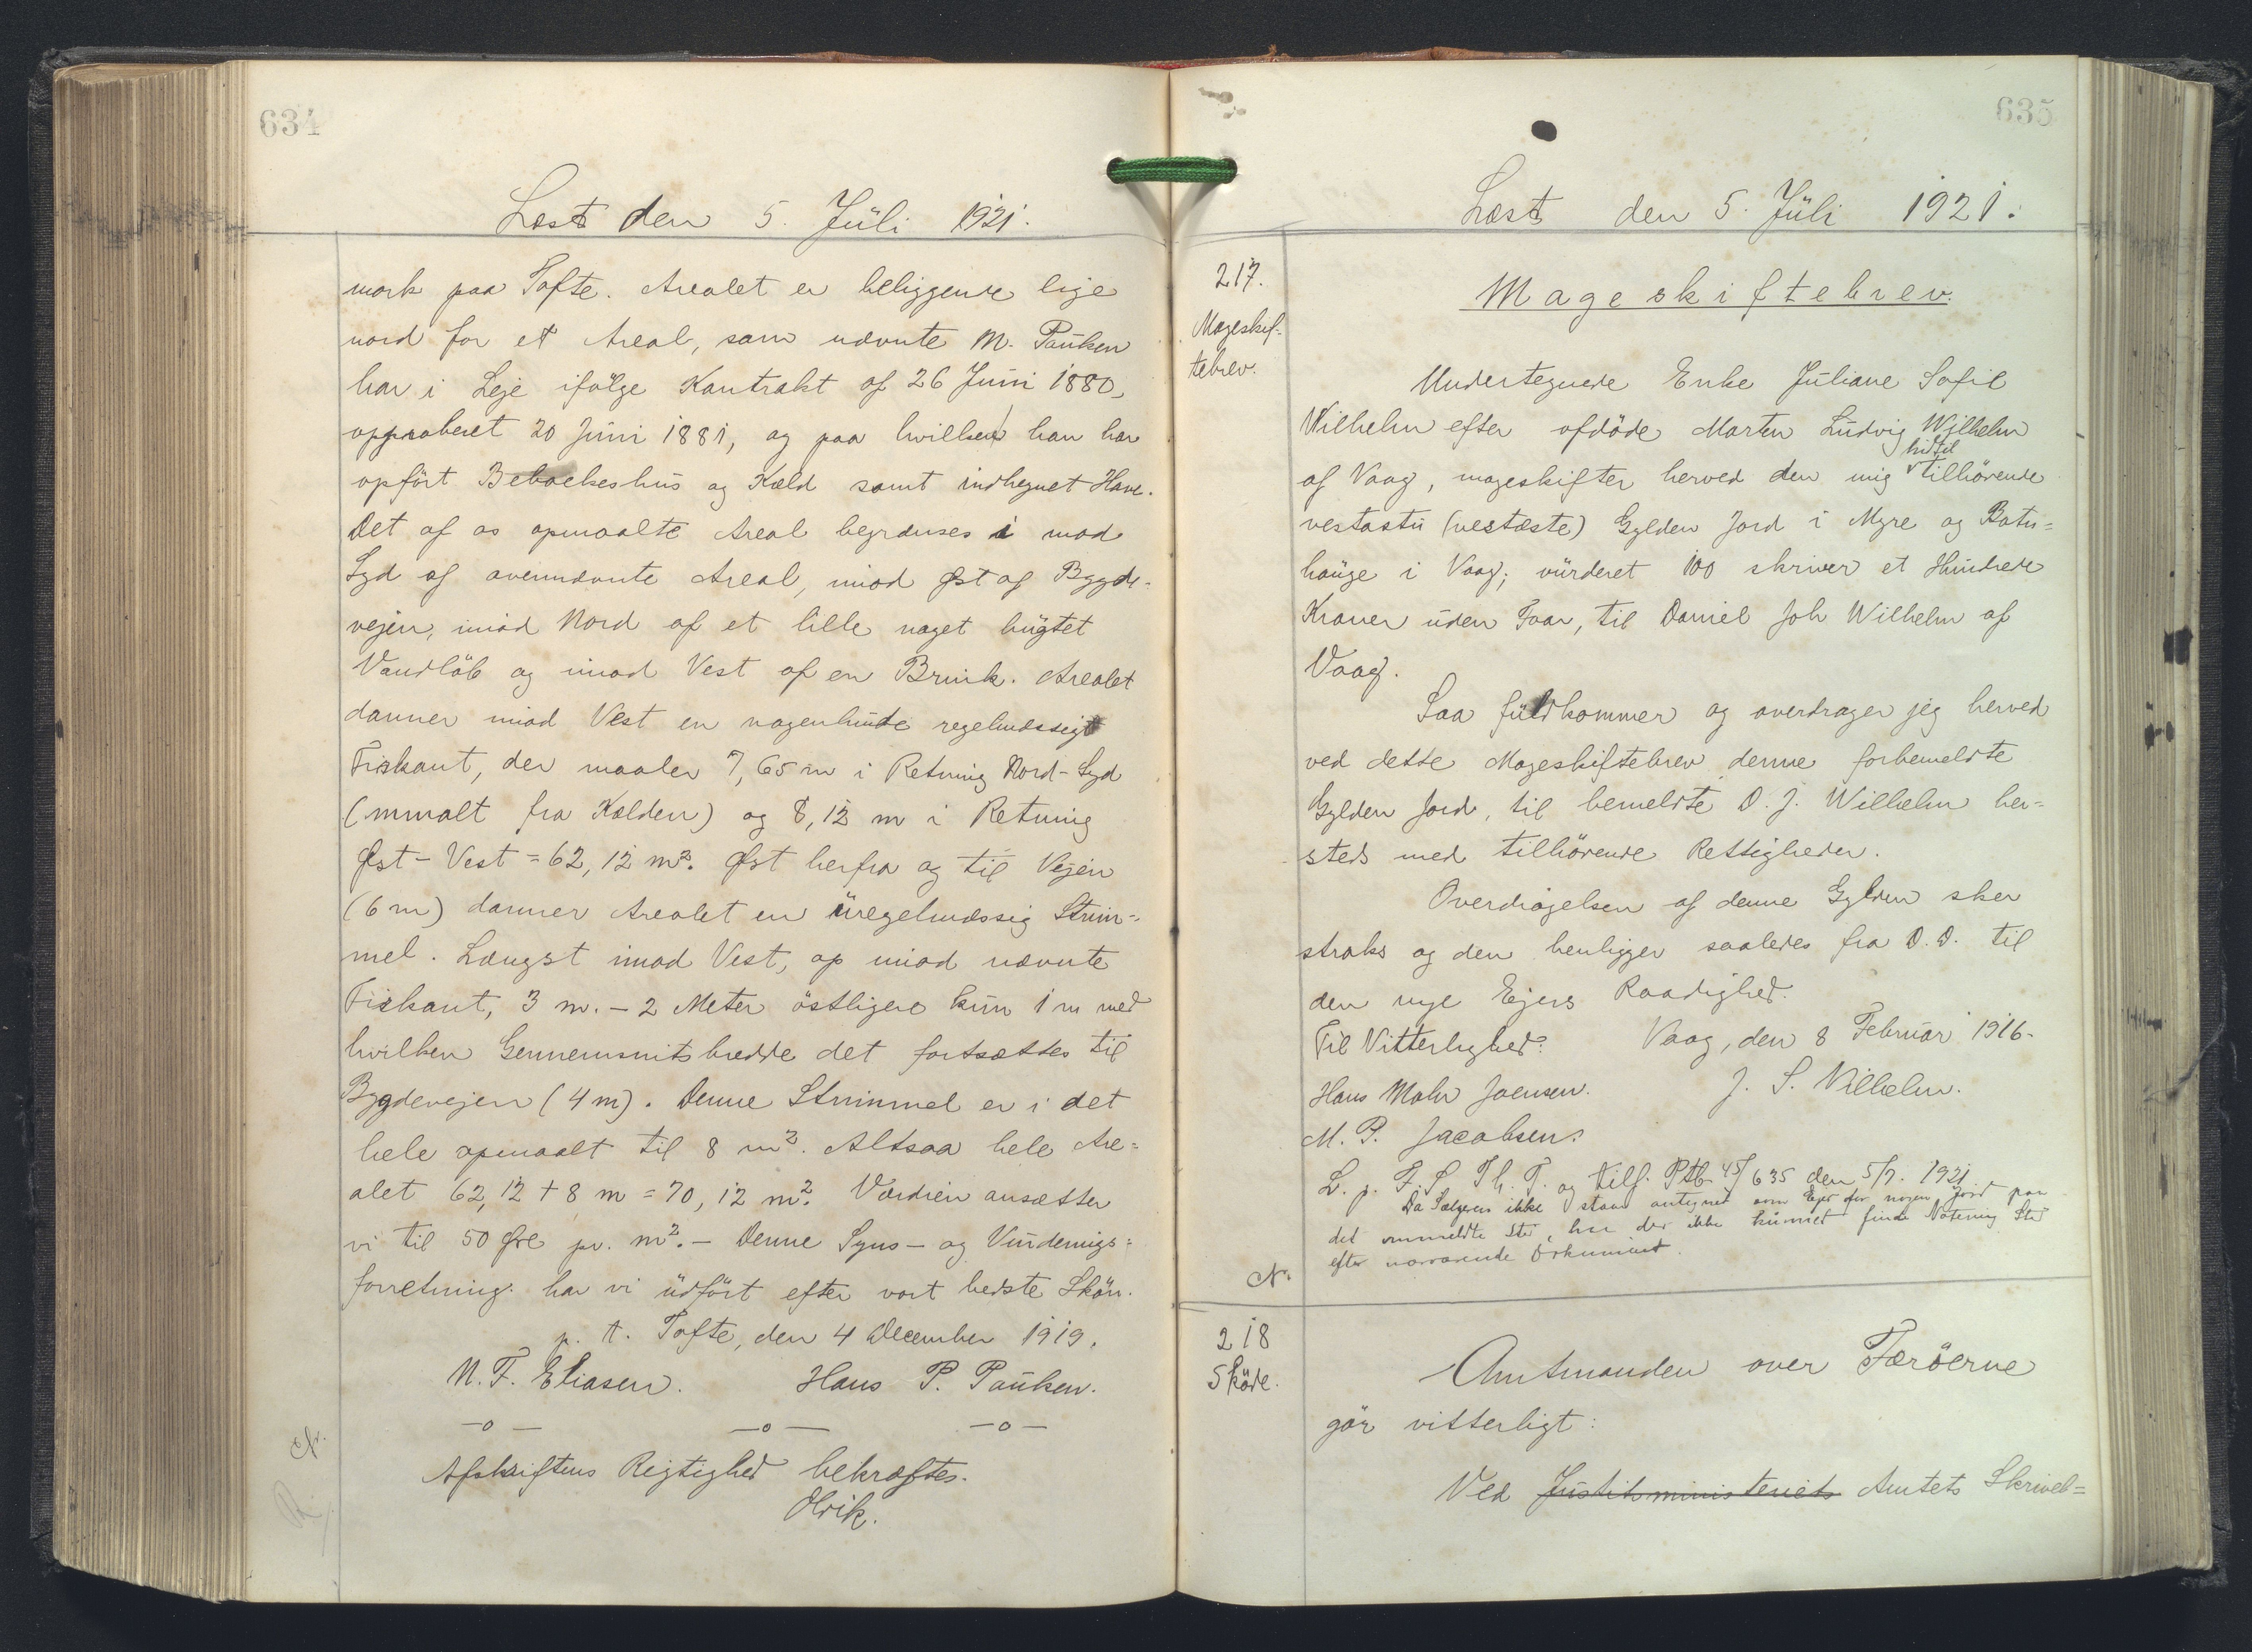 634
Læst den 5. Jüli 1921.
mark paa Tofte. Arealet er beliggende lige
nord for et Areal, som nævnte M. Paülsen
har i Leje ifølge Kontrakt af 26 Juni 1880,
approberet 20 Juni 1881, og paa hvilken han har
opfört Beboelseshüs og Kæld samt indhegnet Have.
Det af os opmaalte Areal begrænses i mod
Syd af ovennævnte Areal, imod Øst af Bygde-
vejen, imod Nord af et lille noget bügtet
Vandlöb og imod Vest af en Brink. Arealet
danner imod Vest en nogenlunde regelmæssigt
Firkant, der maaler 7,65 m i Retning Nord-Syd
(mmalt fra Kælden) og 8,12 m i Retning
Øst-Vest = 62,12 m². Øst herfra og til Vejen
(6 m) danner Arealet en üregelmæssig Strim-
mel. Længst imod Vest, op imod nævnte
Firkant, 3 m. - 2 Meter östligere kün 1 m med
hvilken Gennemsnitsbredde det fortsættes til
Bygdevejen (4 m). Denne Strimmel er i det
hele opmaalt til 8 m². Altsaa hele Are=
alet 62,12 + 8 m = 70,12 m². Værdien ansætter
vi til 50 Øre pr. m². - Denne Syns- og Vürderings=
forretning har vi üdfört efter vort bedste Skön.
p. t. Tofte, den 4 December 1919.
N. F. Eliasen. Hans P. Paülsen.
-o- -o- -o-
Afskriftens Rigtighed bekræftes.
Olrik.
635
Læst den 5. Jüli 1921.
217.
Mageskif-
tebrev.
Mageskiftebrev.
Undertegnede Enke Jüliane Sofie
Wilhelm efter afdöde Morten Lüdvig Wilhelm
hidtil
af Vaag, mageskifter herved den mig tilhörende
vestastü (vestæste) Gylden Jord i Myre og Botn=
haüge i Vaag; vürderet 100 skriver et Hündrede
Kroner üden Faar, til Daniel Joh Wilhelm af
Vaag.
Saa füldkommer og overdrager jeg herved
ved dette Mageskiftebrev denne forbemeldte
Gylden Jord, til bemeldte D. J. Wilhelm her=
steds med tilhörende Rettigheder.
Overdragelsen af denne Gylden sker
straks og den henligger saaledes fra D. D. til
den nye Ejers Raadighed.
Til Vitterlighed: Vaag, den 8 Februar 1916.
Hans Mohr Joensen. J. S. Vilhelm.
M. P. Jacobsen.
L. p. F. S. Th. T. og tilf. Ptb. 45/635 den 5/7. 1921.
Da Sælgeren ikke staar antegnet som Ejer for nogen Jord paa
det ommeldte Sted, har der ikke künnet finde Notering Sted
efter nærværende Dokument.
218
Sköde.
Amtmanden over Færöerne
gör vitterligt:
Ved Justitsministeriets Amtets Skrivel=